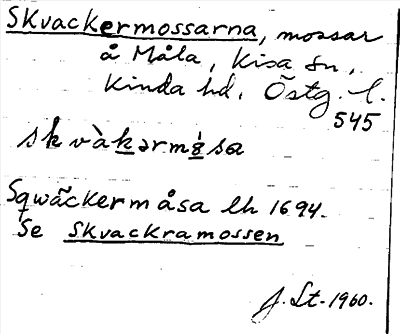 Skvackermossarna, mossar
å Måla, Kisa sn,
Kinda hd, Östg. l.
545
skvàkərmåsa
Sqwäckermåsa lh 1694.
Se Skvackramossen
J. Lt. 1960.